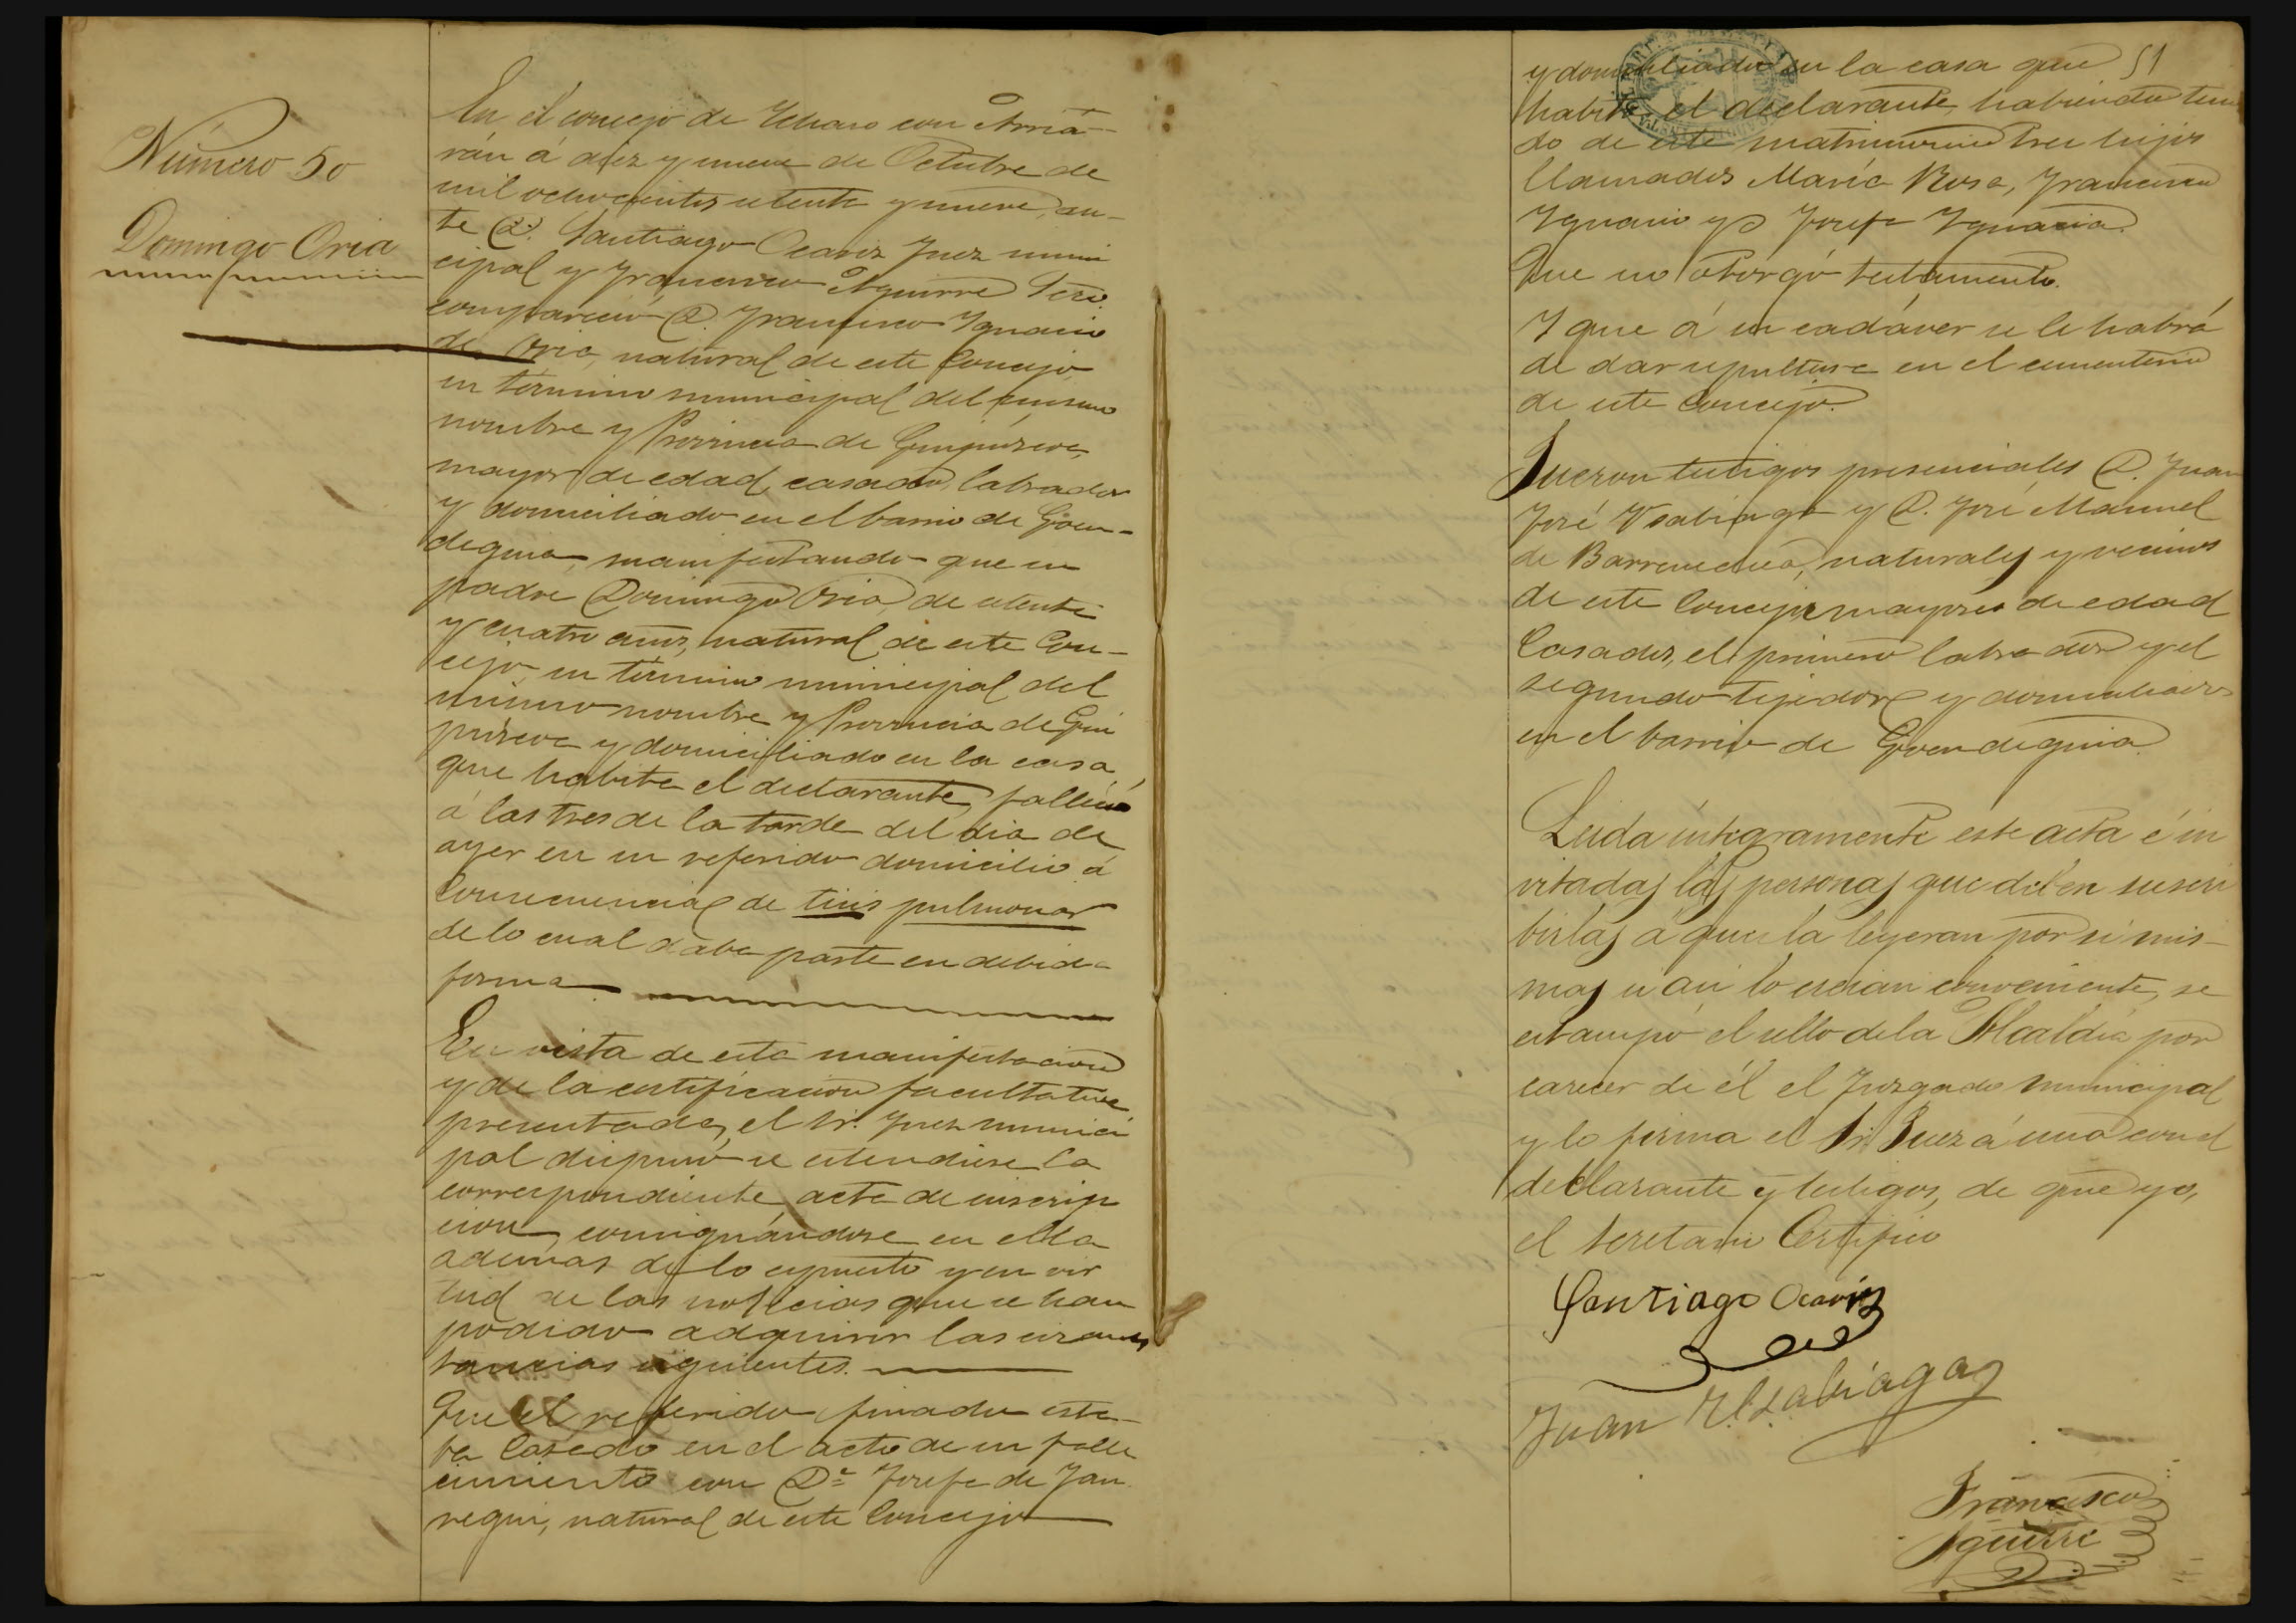 Número 50
Domingo Oria
En el concejo de Ichaso con Arriá-
rán á diez y nueve de Octubre de
mil ochocientos setenta y nueve, an-
te D. Santiago Ocariz Juez muni
cipal y Francisco Aguirre Secrio.
compareció D. Francisco Ignacio
de Oria, natural de este Concejo
en término municipal del mismo
nombre y Provincia de Guipúzcoa,
mayor de edad, casado, labrador
y domiciliado en el barrio de Goen-
deguia, manifestando que su
padre Domingo Oria de setenta
y cuatro años, natural de este Con-
cejo, en término municipal del
mismo nombre y Provincia de Gui
púzcoa y domiciliado en la casa
que habita el declarante, falleció
á las tres de la tarde del dia de
ayer en su referido domicilio á
consecuencia de tisis pulmonar
de lo cual daba parte en debida
forma.
En vista de esta manifestacion
y de la certificacion facultativa
presentada, el Sr. Juez munici
pal dispuso se estendiese la
correspondiente acta de inscrip
cion, consignándose en ella
ademas de lo espuesto y en vir
tud de las noticias que se han
podido adquirir las circuns
tancias siguientes.
Que el referido finado esta-
ba casado en el acto de su falle
cimiento con Da. Josefa de Jau
regui, natural de este Concejo
51
y domiciliada en la casa que
habita el declarante, habiendo teni
do de este matrimonio tres hijos
llamados María Rosa, Francisco
Ignacio y Josefa Ignacia.
Que no otorgó testamento.
Y que á su cadáver se le habrá
de dar sepultura en el cementerio
de este Concejo.
Fueron testigos presenciales D. Juan
José Usabiaga y D. José Manuel
de Barrenechea, naturales y vecinos
de este Concejo mayores de edad
Casados, el primero labrador y el
segundo tejedor y domiciliados
en el barrio de Goendeguia.
Leida íntegramente este acta é in
vitadas las personas que deben suscri
birlas á que la leyeran por si mis-
mas si asi lo creian conveniente, se
estampó el sello de la Alcaldía por
carecer de él el Juzgado municipal
y lo firma el Sr. Juez á una con el
declarante y testigos, de que yo,
el Secretario Certifico
Santiago Ocariz
Juan Usabiaga
Francisco
Aguirre